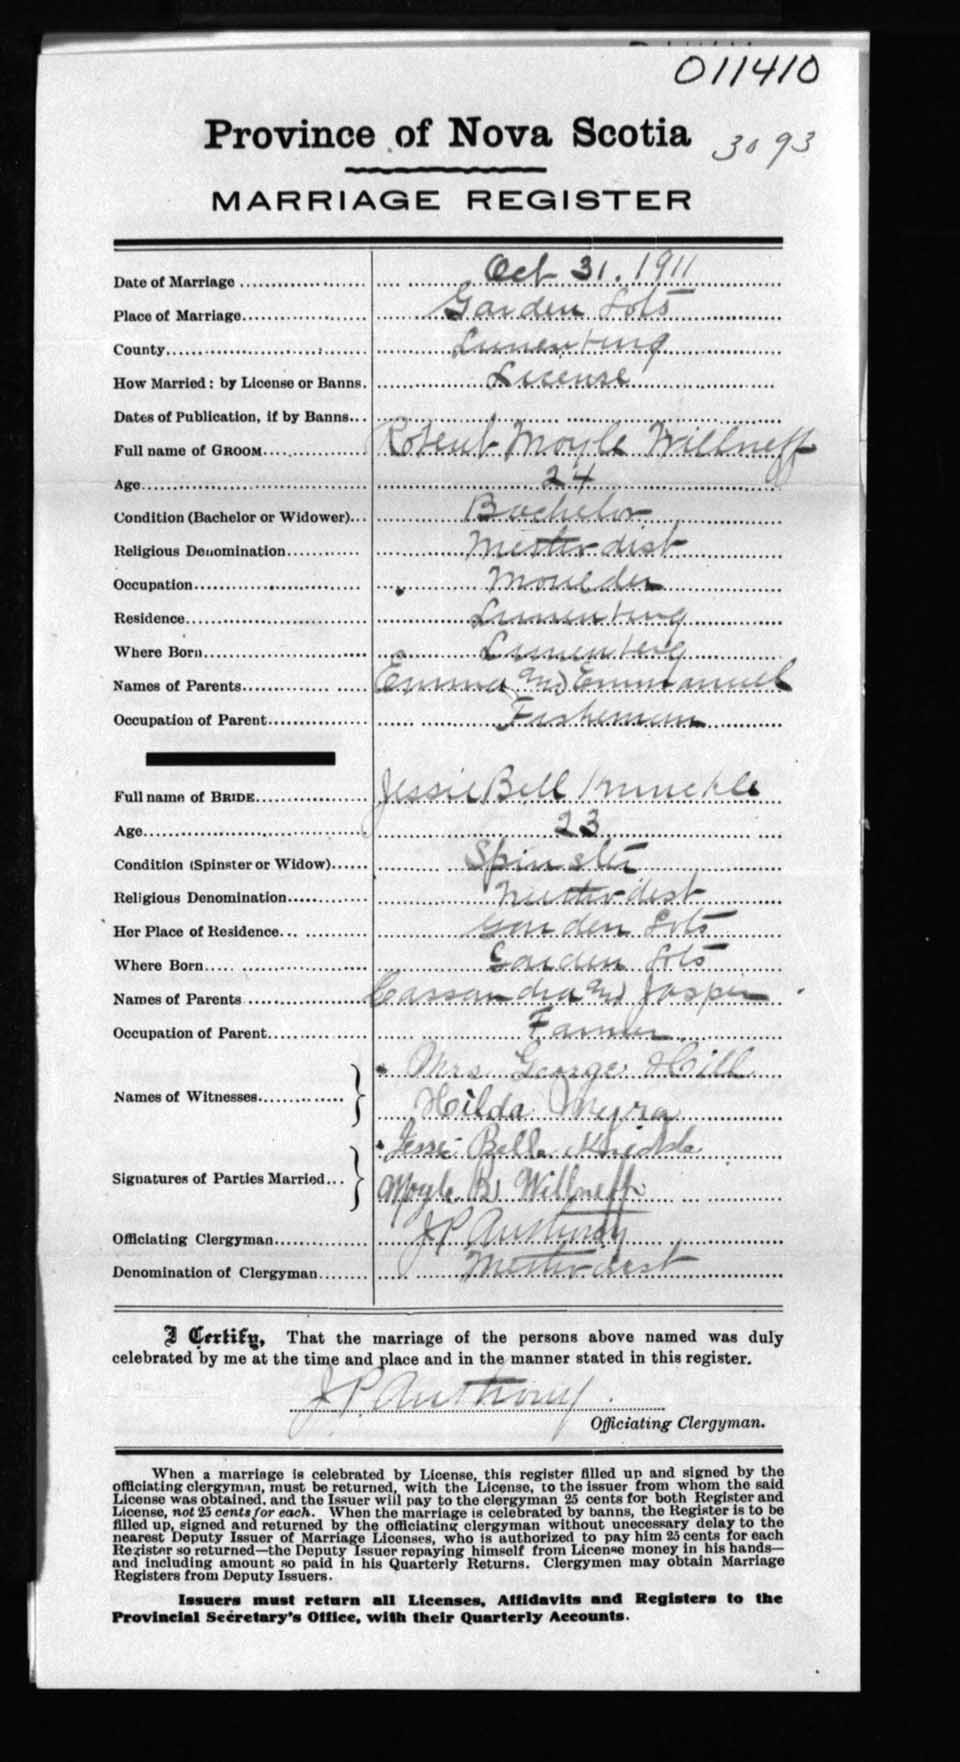 011410
Province of Nova Scotia 3093
MARRIAGE REGISTER
Date of Marriage Oct 31. 1911
Place of Marriage Garden Lots
County Lunenburg
How Married: by License or Banns. License
Dates of Publication, if by Banns
Full name of GROOM Robert Moyle Willneff
Age 24
Condition (Bachelor or Widower) Bachelor
Religious Denomination Methodist
Occupation Moulder
Residence Lunenburg
Where Born Lunenburg
Names of Parents Emma and Emmanuel
Occupation of Parent Fisherman
Full name of BRIDE Jessie Bell Knuckle
Age 23
Condition (Spinster or Widow) Spinster
Religious Denomination Methodist
Her Place of Residence Garden Lots
Where Born Garden Lots
Names of Parents Cassandra and Jasper
Occupation of Parent Farmer
Mrs George Hill
Names of Witnesses
Hilda Myra
Jessie Bell
Signatures of Parties Married
Moyle R Willneff
Officiating Clergyman J P Anthony
Denomination of Clergyman Methodist
I Certify, That the marriage of the persons above named was duly
celebrated by me at the time and place and in the manner stated in this register.
J P Anthony
Officiating Clergyman.
When a marriage is celebrated by License, this register filled up and signed by the
officiating clergyman, must be returned, with the License, to the issuer from whom the said
License was obtained, and the Issuer will pay to the clergyman 25 cents for both Register and
License, not 25 cents for each. When the marriage is celebrated by banns, the Register is to be
filled up, signed and returned by the officiating clergyman without unecessary delay to the
nearest Deputy Issuer of Marriage Licenses, who is authorized to pay him 25 cents for each
Register so returned—the Deputy Issuer repaying himself from License money in his hands—
and including amount so paid in his Quarterly Returns. Clergymen may obtain Marriage
Registers from Deputy Issuers.
Issuers must return all Licenses, Affidavits and Registers to the
Provincial Secretary's Office, with their Quarterly Accounts.